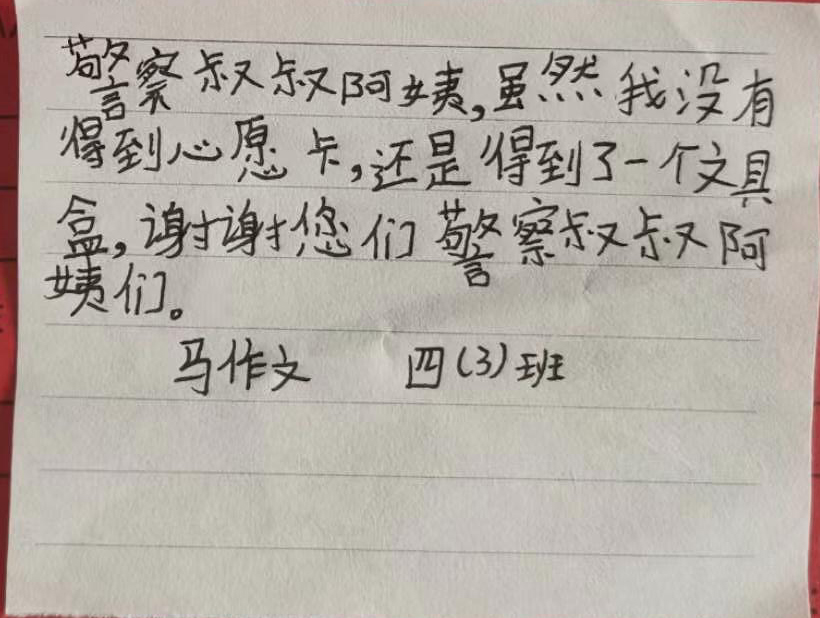 警察叔叔阿姨,虽然我没有
得到心愿卡,还是得到了一个文具
盒,谢谢您们警察叔叔阿
姨们。
马作文 四(3)班